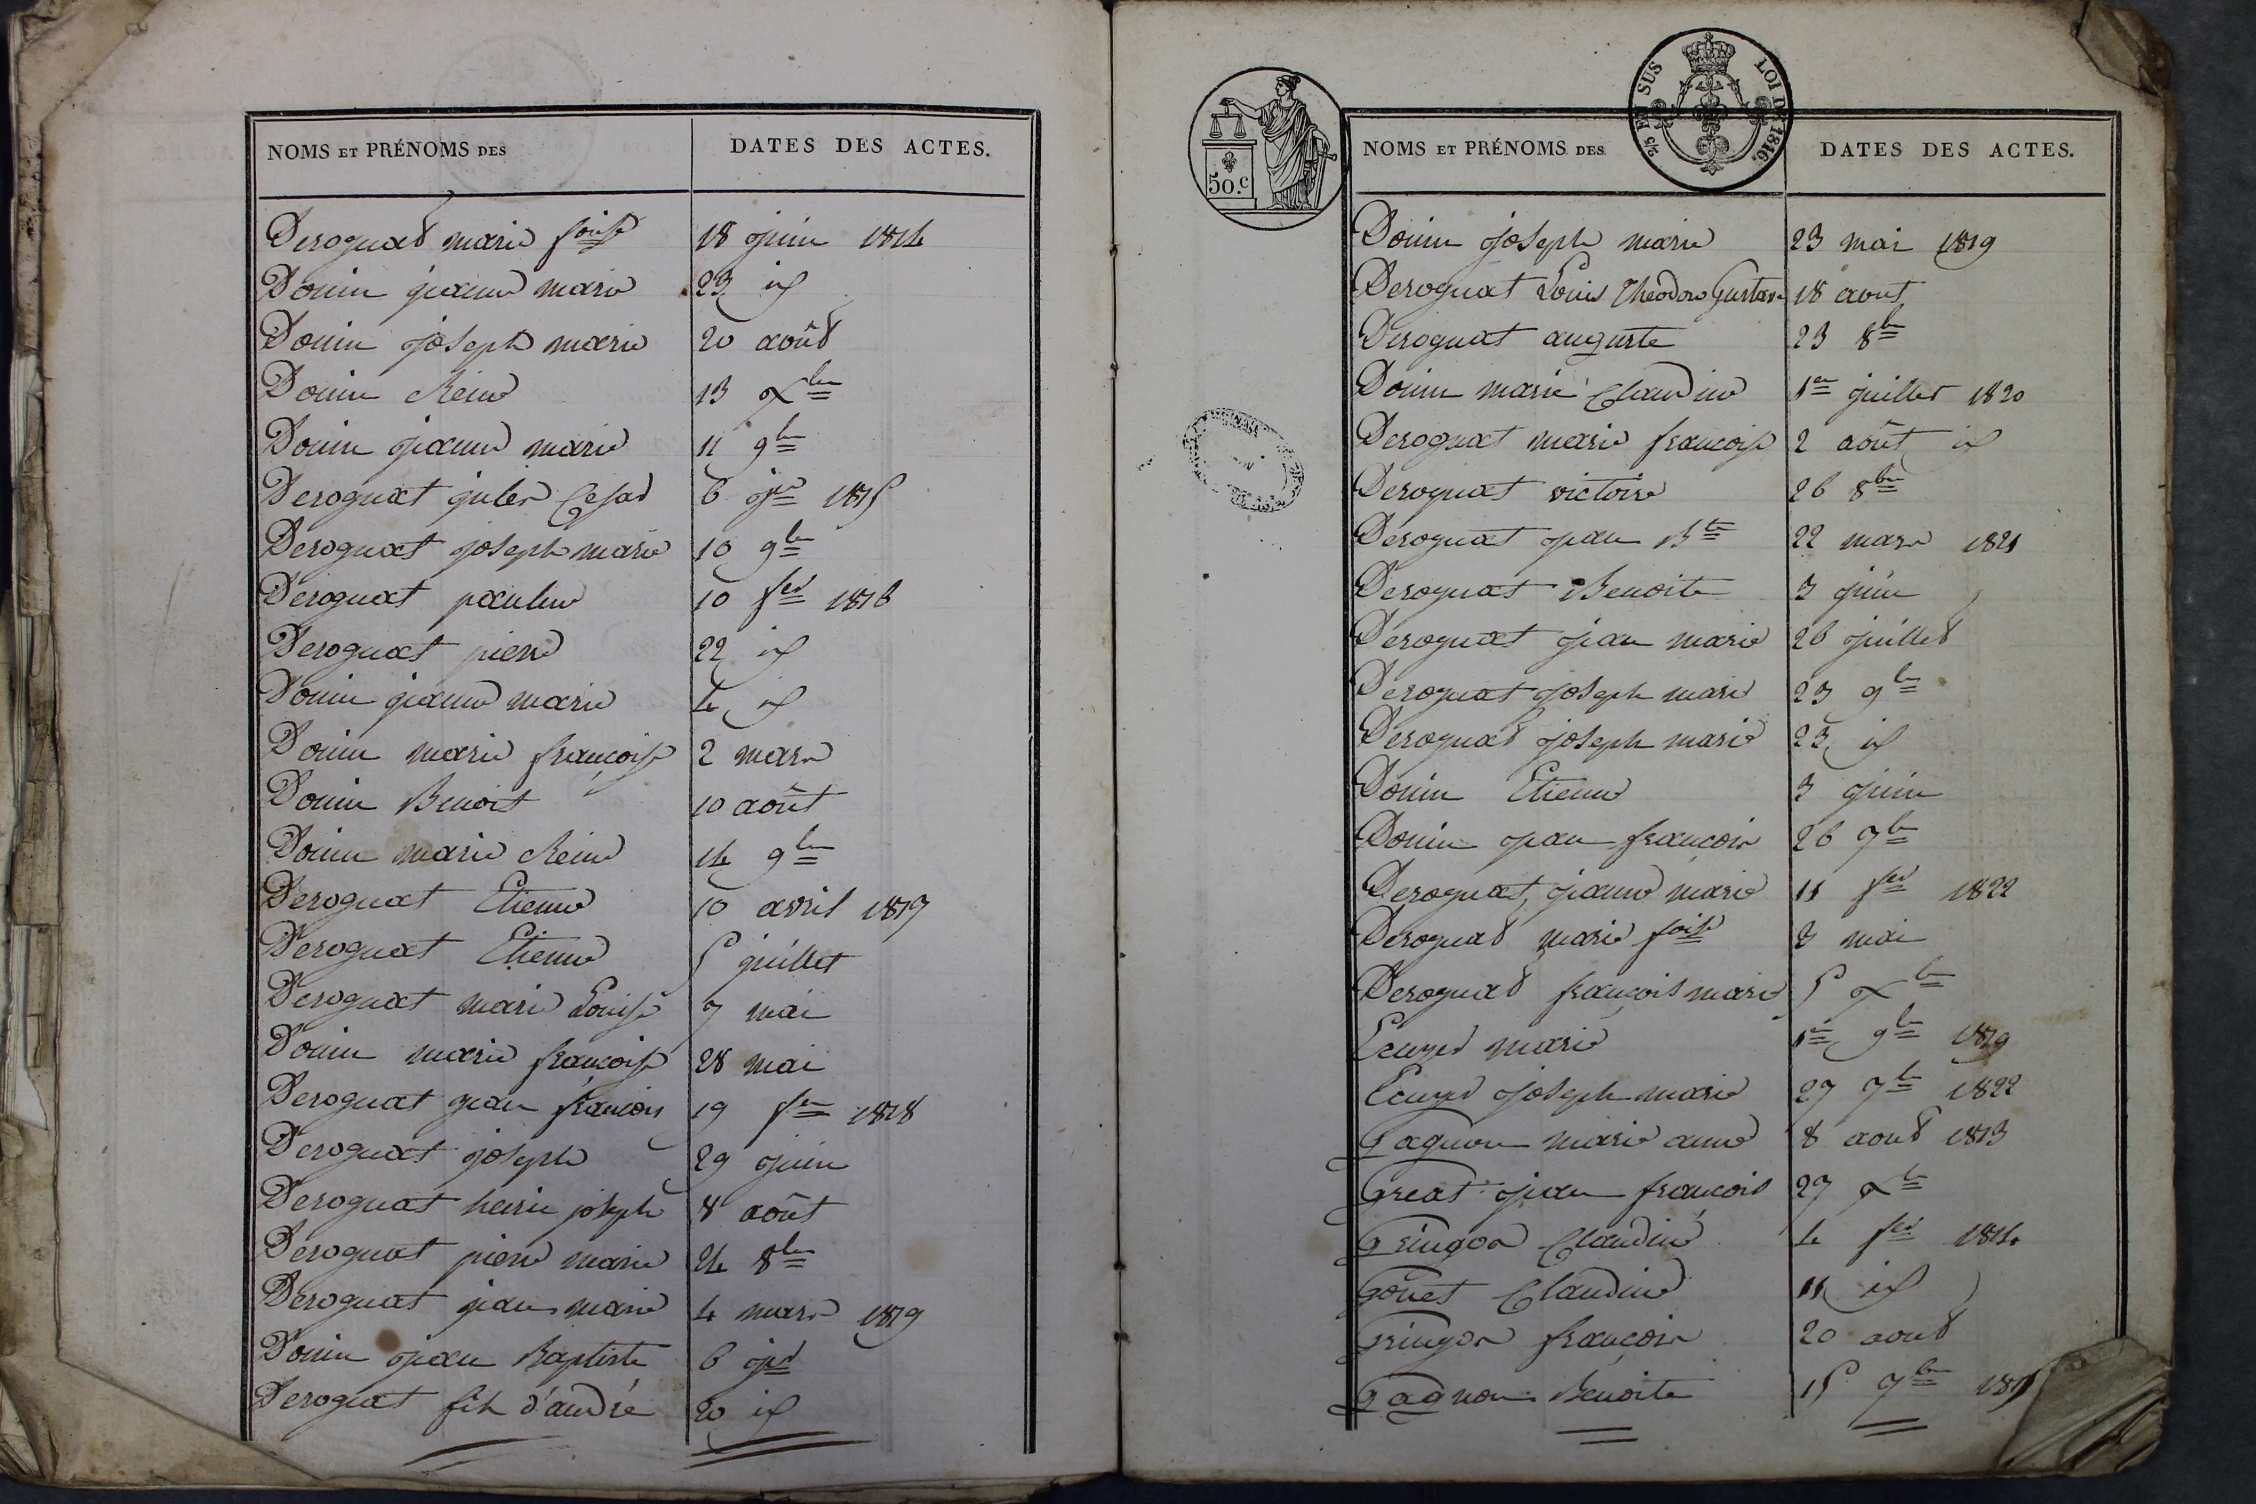 NOMS ET PRÉNOMS DES DATES DES ACTES.
Deroguat marie foise 18 juin 1814
Donin jeanne marie 23 id
Donin joseph marie 20 août
Donin Reine 13 Xbre
Donin jeanne marie 11 9bre
Deroguat jules Cesar 6 jer 1815
Deroguat joseph marie 10 9bre
Deroguat pauline 10 fer 1816
Deroguat pierre 22 id
Donin jeanne marie 4 id
Donin marie françoise 2 mars
Donin Benoit 10 août
Donin marie Reine 14 9bre
Deroguat Etienne 10 avril 1817
Deroguat Etienne 5 juillet
Deroguat marie Louise 7 mai
Donin marie françoise 28 mai
Deroguat jean françois 19 fer 1818
Deroguat joseph 29 juin
Deroguat henrie joseph 8 août
Deroguat pierre marie 24 8bre
Deroguat jean marie 4 mars 1819
Donin jean Baptiste 6 jer
Deroguat fils d'andré 20 id
2/5 EN SUS LOI DE 1816.
50.c
NOMS ET PRÉNOMS DES DATES DES ACTES.
Donin joseph marie 23 mai 1819
Deroguat Louis Theodore Gustave 18 aout
Deroguat auguste 23 8bre
Donin marie Claudine 1er juillet 1820
Deroguat marie francoise 2 août id
Deroguat victoire 26 8bre
Deroguat jean Bte 22 mars 1821
Deroguat Benoite 3 juin
Deroguat jean marie 26 juillet
Deroguat joseph marie 23 9bre
Deroguat joseph marie 23 id
Donin Etienne 3 juin
Donin jean francois 26 7bre
Deroguat jeanne marie 11 fer 1822
Deroguat marie foise 8 mai
Deroguat françois marie 5 Xbre
Ecuyer marie 1er 9bre 1819
Ecuyer joseph marie 27 7bre 1822
Gagnon marie anne 8 aout 1813
Great jean françois 27 Xbre
Gringon Claudine 4 fer 1814
Gonet Claudine 11 id
Gringon françois 20 aout
Gagnon Benoite 15 7bre 1815